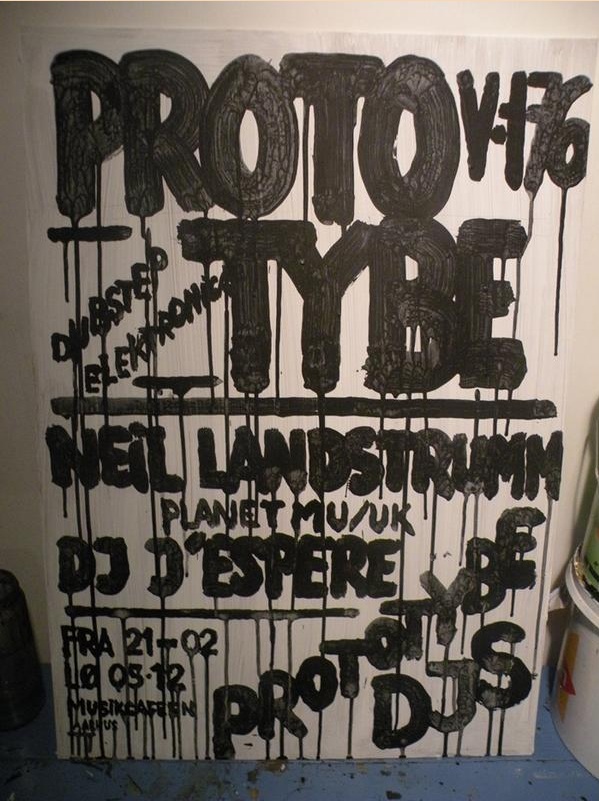 PROTO V.176
TYBE
DUBSTEP
ELEKTRONICA
NEIL LANDSTRUMM
PLANET MU/UK
DJ J'ESPERE
FRA 21-02
LØ 05.12
MUSIKCAFEEN
AARHUS
PROTOTYBE
DJS